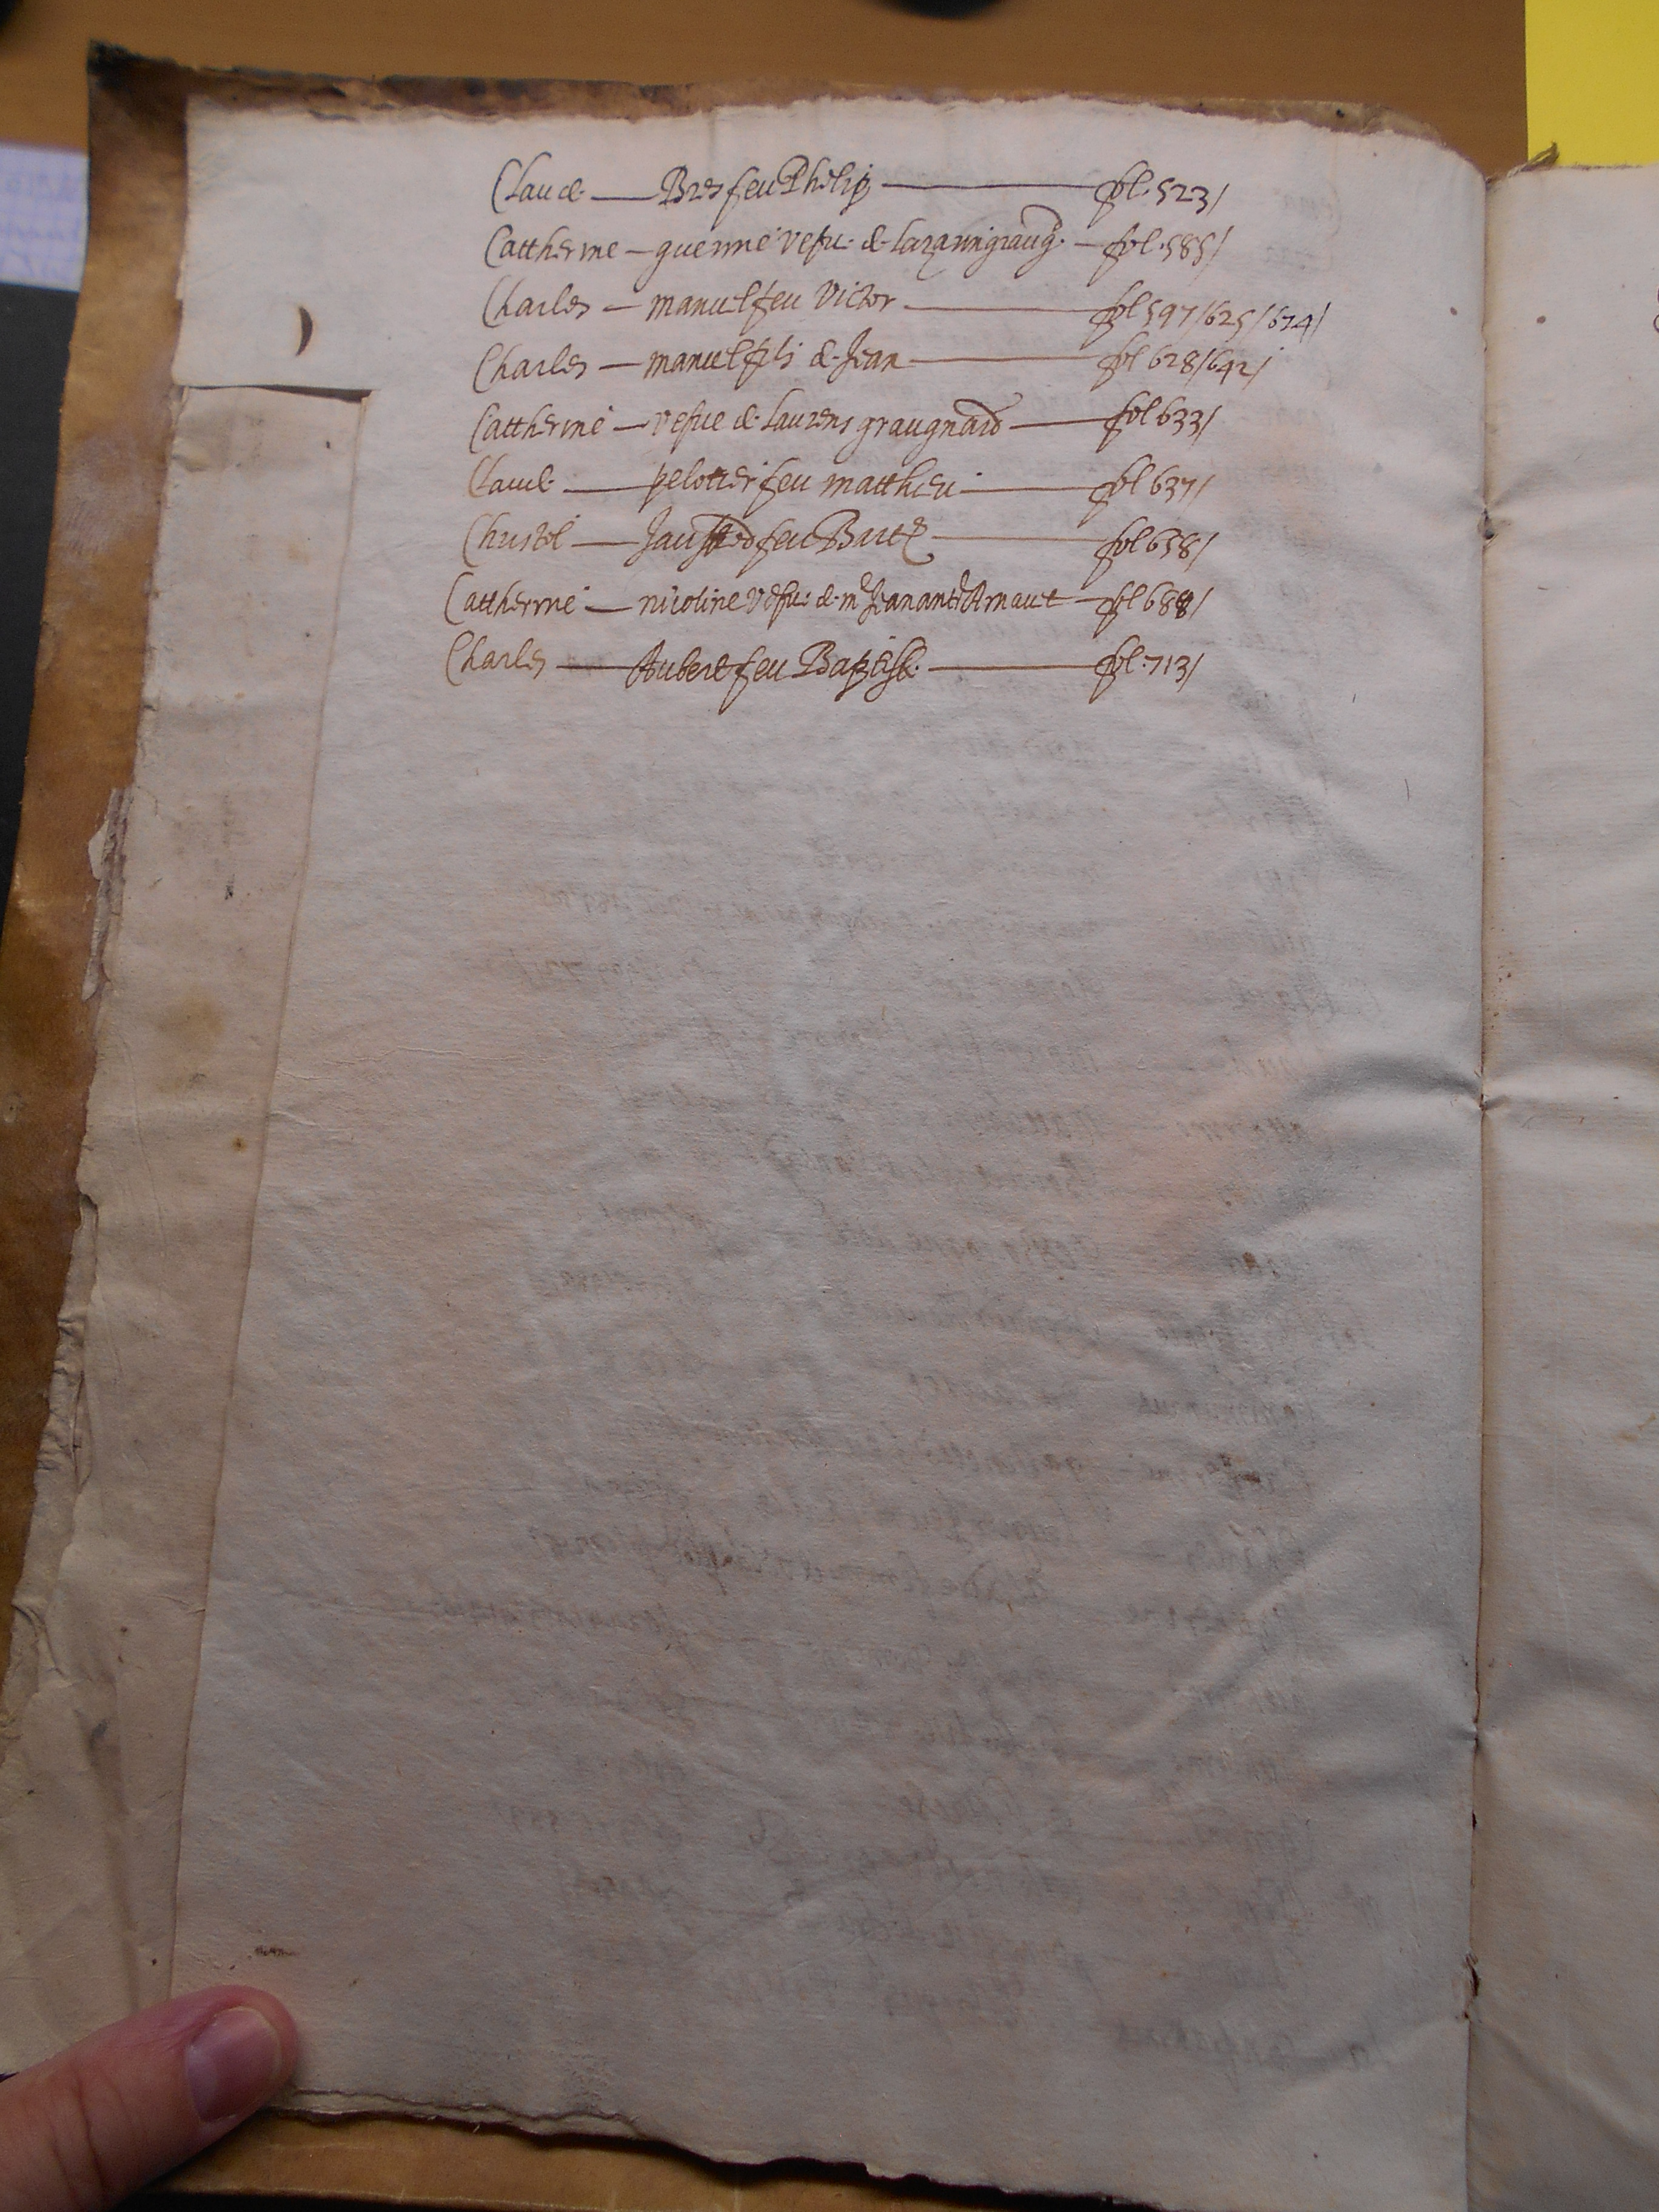 Claude — Bres feu Philip — fol. 523/
Cattherine — guerine vefue de Lazarin graug. — fol. 585/
Charles — manuel feu Victor — fol 597/625/674/
Charles — manuel fils de Jean — fol 628/642/
Cattherine — vefue de Laurens graugnard — fol 633/
Claude — pelottier feu matthieu — fol 637/
Christol — feu Bart.e — fol 638/
Cattherine — nicoline vefue de mr Jean ant.e Arnaut — fol 688/
Charles — Aubert feu Baptiste — fol. 713/